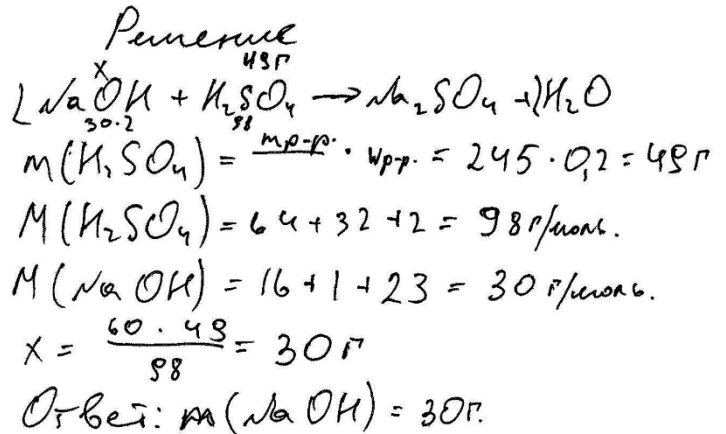 Решение
x 49г
2NaOH + H₂SO₄ → Na₂SO₄ + 2H₂O
30·2 98
m(H₂SO₄) = mр-р. · wр-р. = 245 · 0,2 = 49г
M(H₂SO₄) = 64 + 32 + 2 = 98 г/моль.
M(NaOH) = 16 + 1 + 23 = 30 г/моль.
x = 60 · 49 / 98 = 30 г
Ответ: m(NaOH) = 30г.